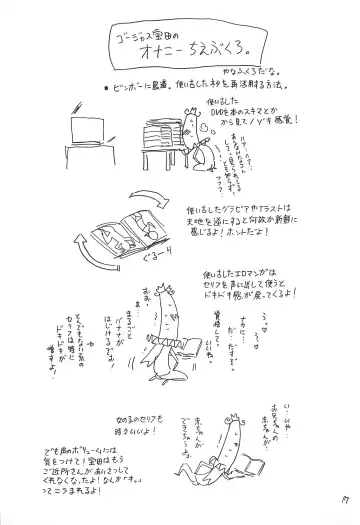 ゴージャス宝田の
オナニーちえぶくろ。
やなふくろだな。
• ビンボーに最適。使い古したネタを再活用する方法。
使い古した
DVDを本のスキマとか
から見てノゾキ感覚!
ハァ…ハァ…
使い古したグラビアやイラストは
天地を逆にすると何故か新鮮に
感じるよ!ホントだよ!
ぐるーり
使い古したエロマンガは
セリフを声に出して使うと
ドキドキ感が戻ってくるよ!
う…っ
ナカに…っ
だ だすぞっ
覚悟して。
いいね。
おお。
まるごと
バナナが
はじけるでおい!
とんでもない系の
セリフは特に
ドキドキが
増すよ!
女の子のセリフも
読むといいよ!
い…いや…
お兄ちゃんの
赤ちゃんが…
赤ちゃんが
できちゃうよ
でも声のボリュームには
気をつけて!宝田はもう
ご近所さんがあいさつして
くれなくなったよ!なんか「すっ。」
ってニラまれるよ!
17